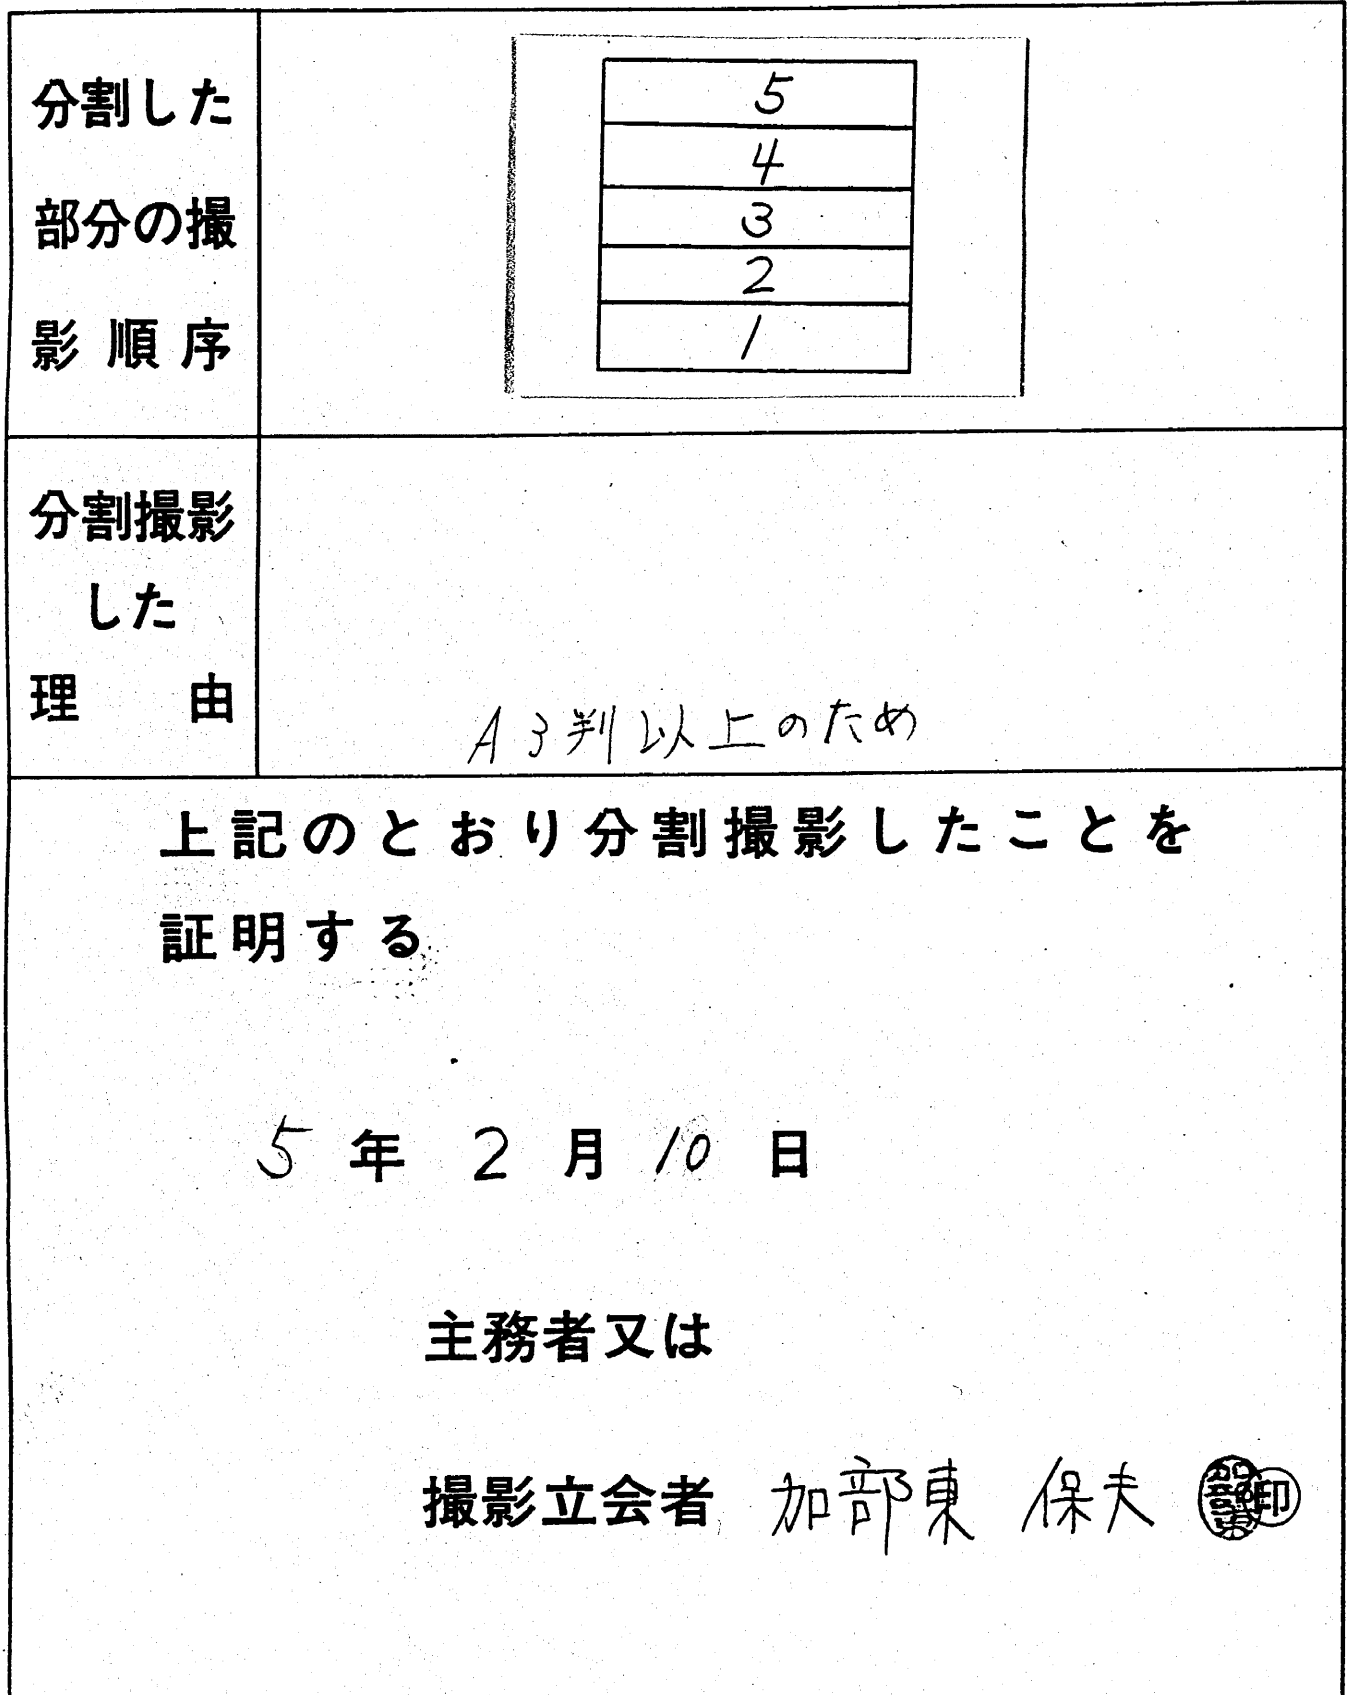 分割した
部分の撮
影順序
5
4
3
2
1
分割撮影
した
理由
A3判以上のため
上記のとおり分割撮影したことを
証明する
5年2月10日
主務者又は
撮影立会者 加部東 保夫 印
加部東